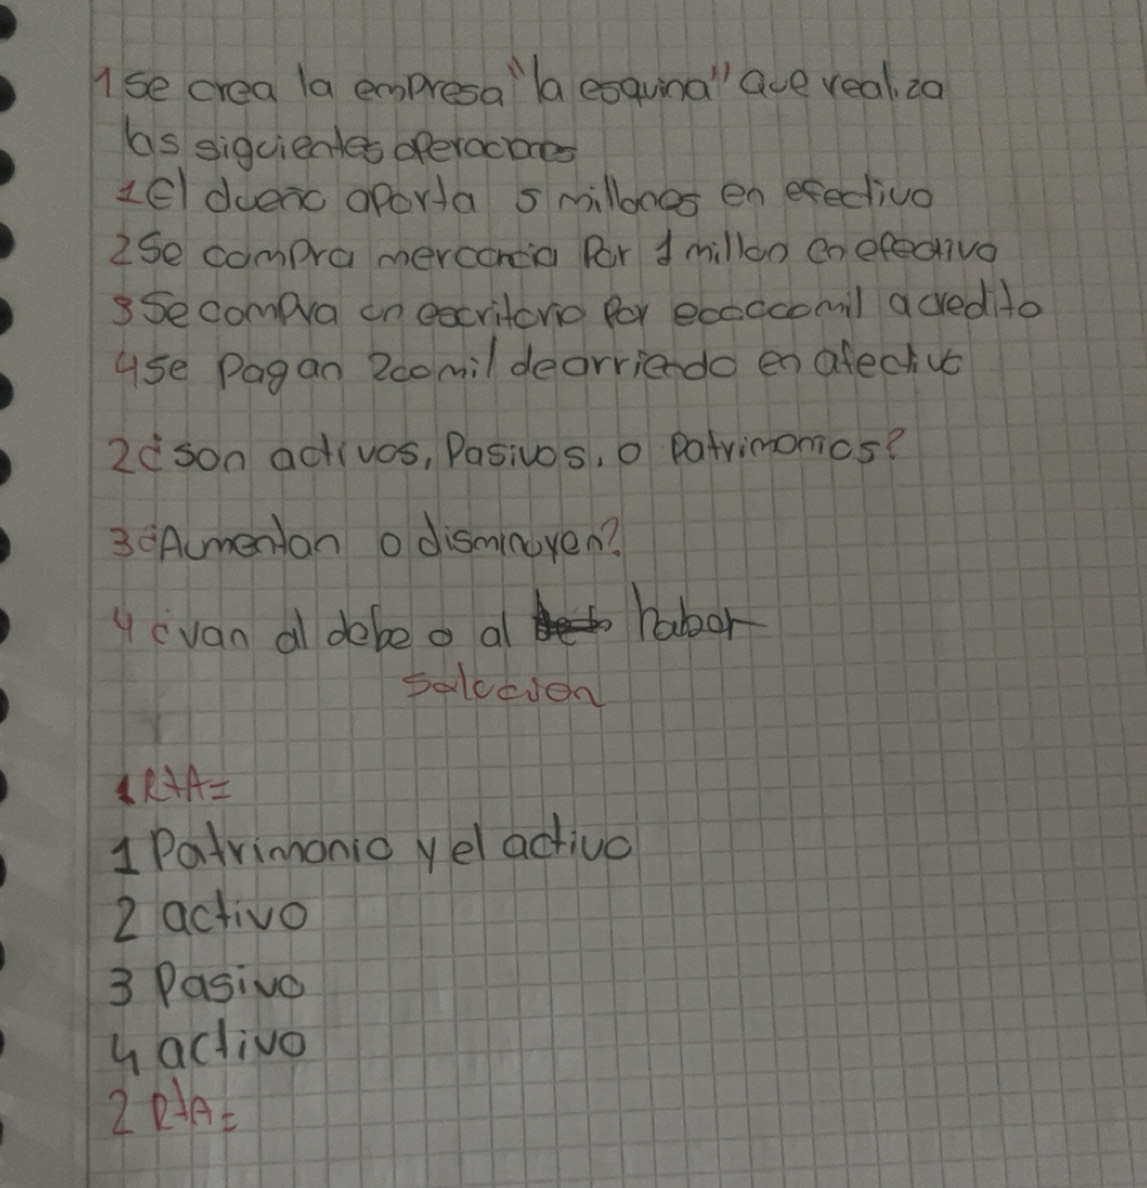 1 Se crea la empresa "la esquina" Que realiza
las siguientes operaciones
1 El dueño aporta 5 millones en efectivo
2 Se compra mercancia Por 1 millon en efectivo
3 Se compra un escritorio por mil a credito
4 se Pagan 200 mil de arriendo en afectivo
2 ¿son activos, Pasivos, o Patrimonios?
3 ¿Aumentan o disminuyen?
4 ¿van al debe o al haber
solucion
1 RTA=
1 Patrimonio y el activo
2 activo
3 Pasivo
4 activo
2 RTA=